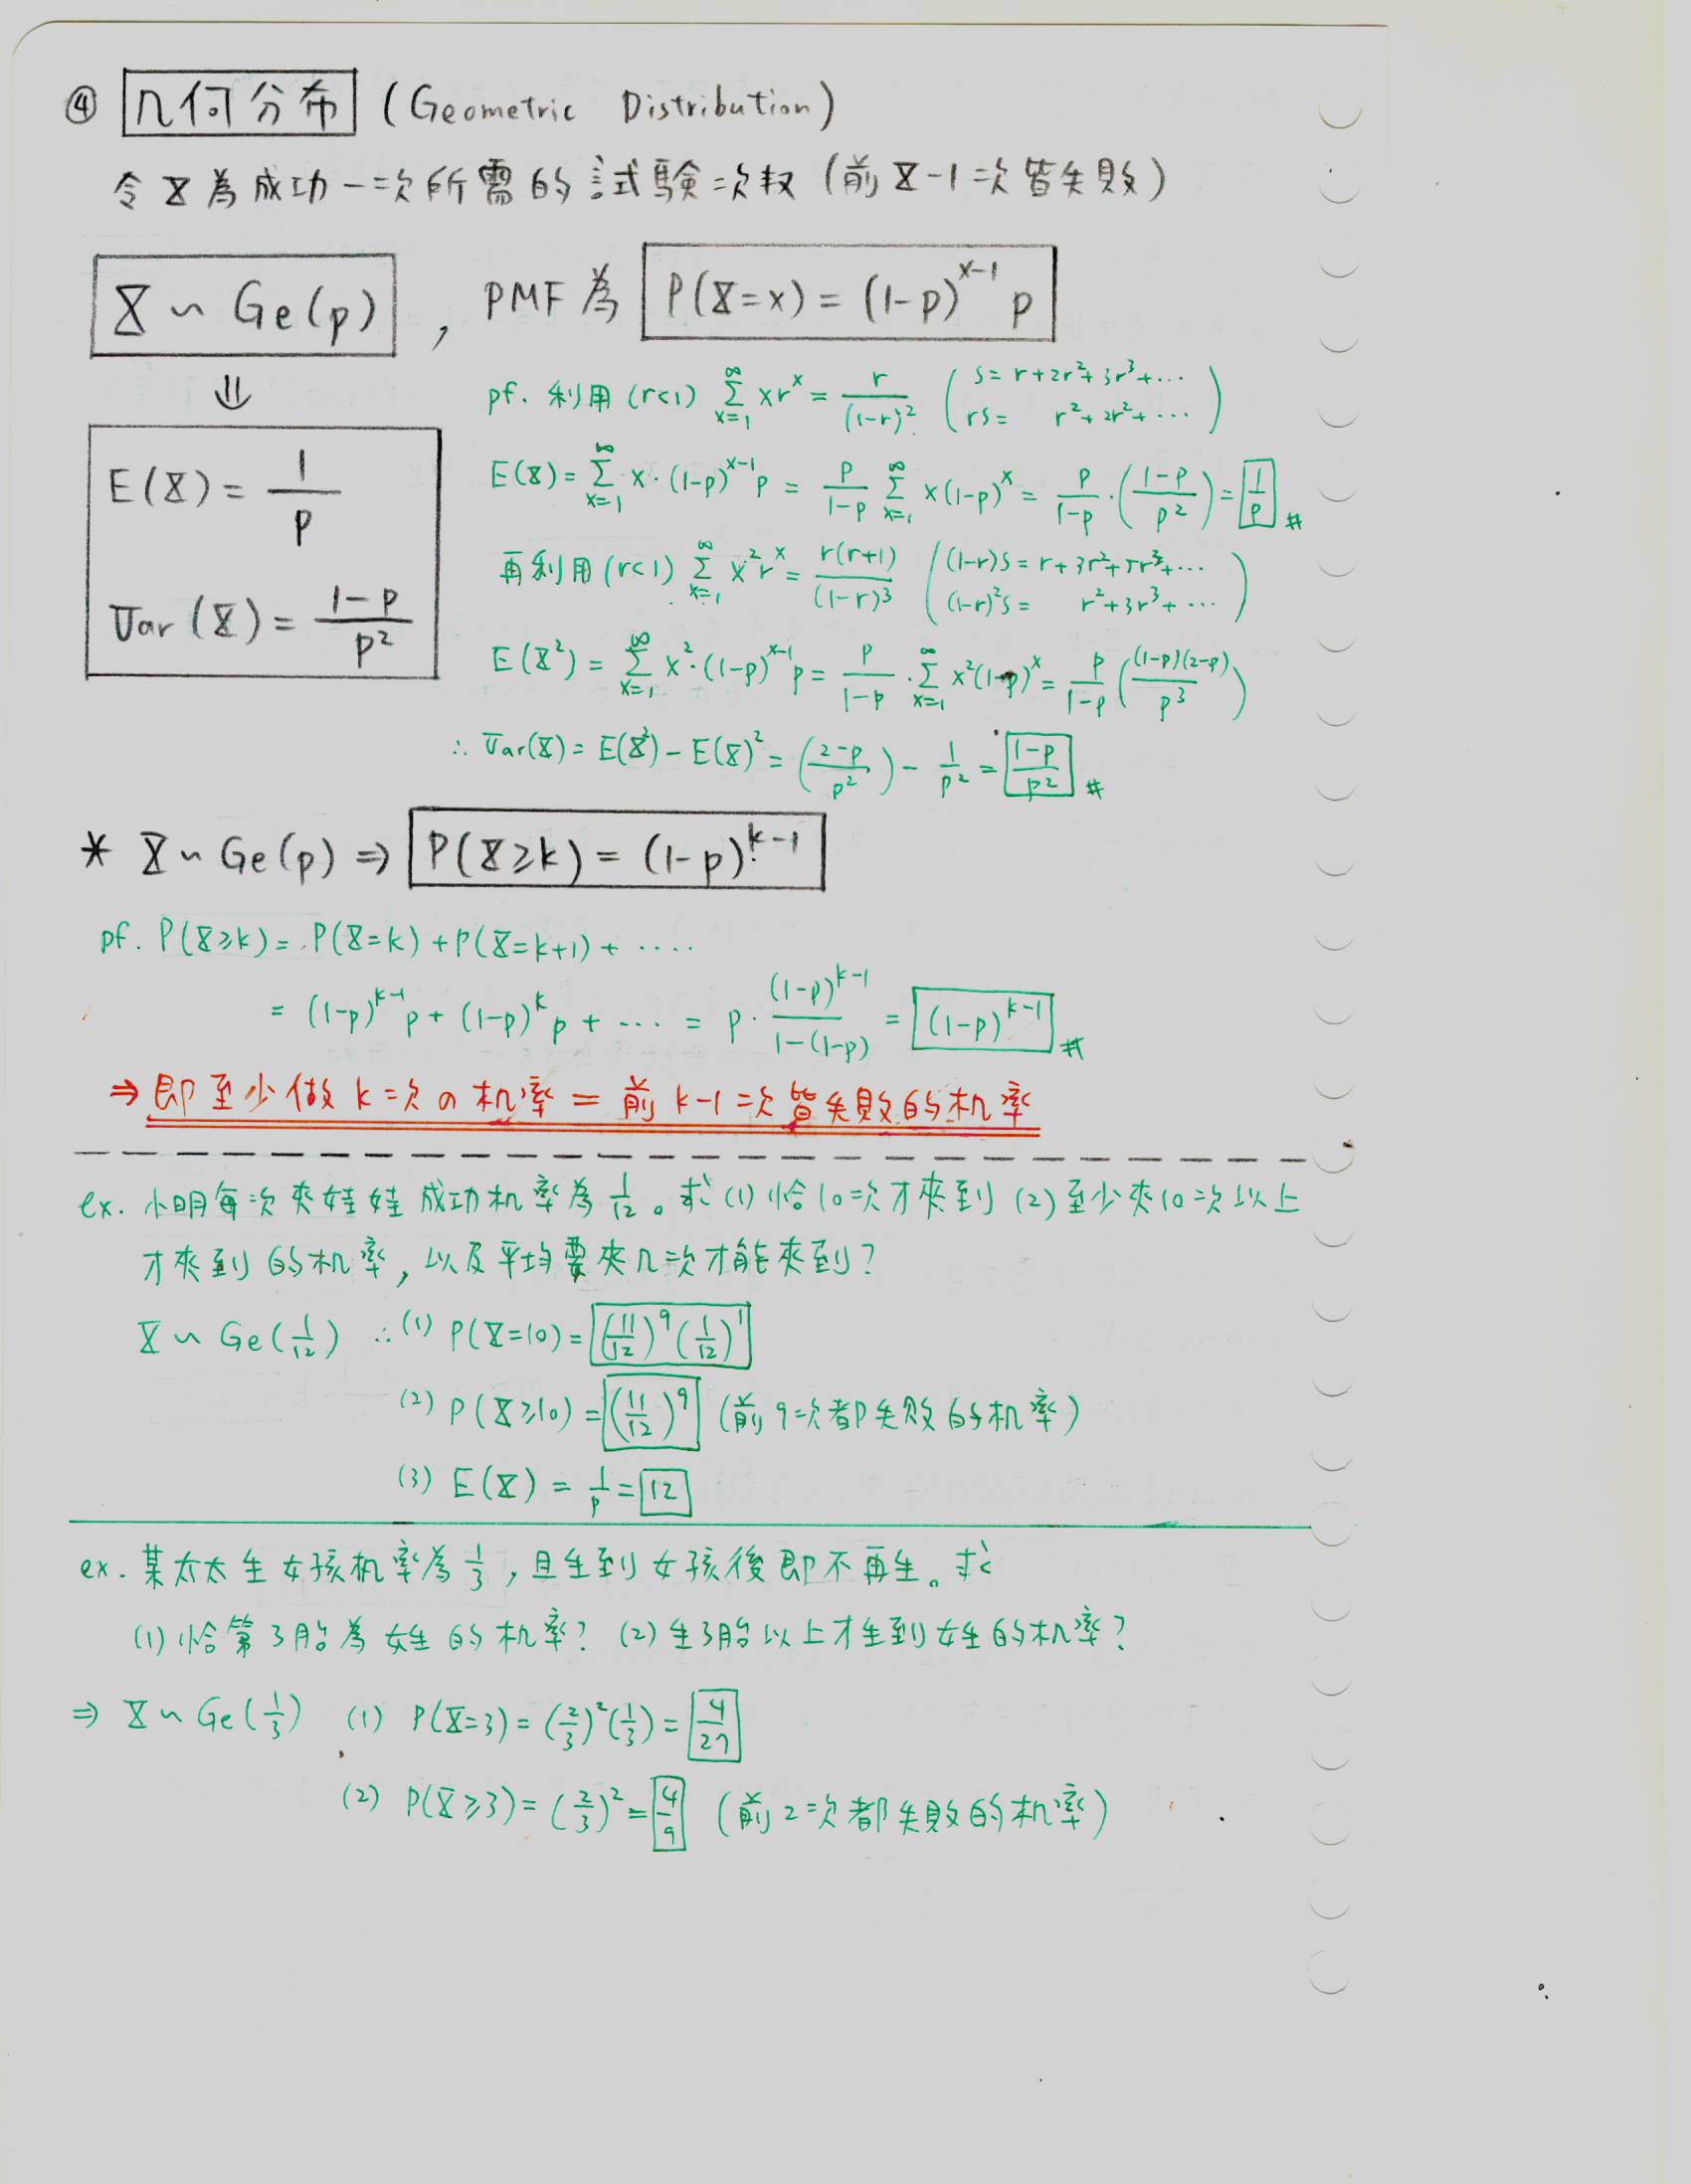 ④ 几何分布 (Geometric Distribution)
令X為成功一次所需的試驗次数 (前X-1次皆失敗)
X ~ Ge(p) , PMF為 P(X=x) = (1-p)^{x-1} p
⇓
E(X) = 1/p
Var(X) = (1-p)/p²
pf. 利用 (r<1) ∑_{x=1}^{∞} x r^x = r/(1-r)² ( S = r+2r²+3r³+⋯
rS = r²+2r²+⋯ )
E(X) = ∑_{x=1}^{∞} x·(1-p)^{x-1} p = p/(1-p) ∑_{x=1}^{∞} x(1-p)^x = p/(1-p) · ((1-p)/p²) = 1/p #
再利用 (r<1) ∑_{x=1}^{∞} x² r^x = r(r+1)/(1-r)³ ( (1-r)S = r+3r²+5r³+⋯
(1-r)²S = r²+3r³+⋯ )
E(X²) = ∑_{x=1}^{∞} x²·(1-p)^{x-1} p = p/(1-p) · ∑_{x=1}^{∞} x²(1-p)^x = p/(1-p) ((1-p)(2-p)/p³)
∴ Var(X) = E(X²) - E(X)² = ((2-p)/p²) - 1/p² = (1-p)/p² #
* X ~ Ge(p) ⇒ P(X≥k) = (1-p)^{k-1}
pf. P(X≥k) = P(X=k) + P(X=k+1) + ⋯⋅
= (1-p)^{k-1} p + (1-p)^k p + ⋯ = p · (1-p)^{k-1}/(1-(1-p)) = (1-p)^{k-1} #
⇒ 即至少做k次の机率 = 前k-1次皆失敗的机率
ex. 小明每次夾娃娃成功机率為 1/12。求 (1) 恰10次才夾到 (2) 至少夾10次以上
才夾到的机率, 以及平均要夾几次才能夾到?
X ~ Ge(1/12) ∴ (1) P(X=10) = (11/12)^9 (1/12)^1
(2) P(X≥10) = (11/12)^9 (前9次都失敗的机率)
(3) E(X) = 1/p = 12
ex. 某太太生女孩机率為 1/3, 且生到女孩後即不再生。求
(1) 恰第3胎為女生的机率? (2) 生3胎以上才生到女生的机率?
⇒ X ~ Ge(1/3) (1) P(X=3) = (2/3)² (1/3) = 4/27
(2) P(X≥3) = (2/3)² = 4/9 (前2次都失敗的机率)